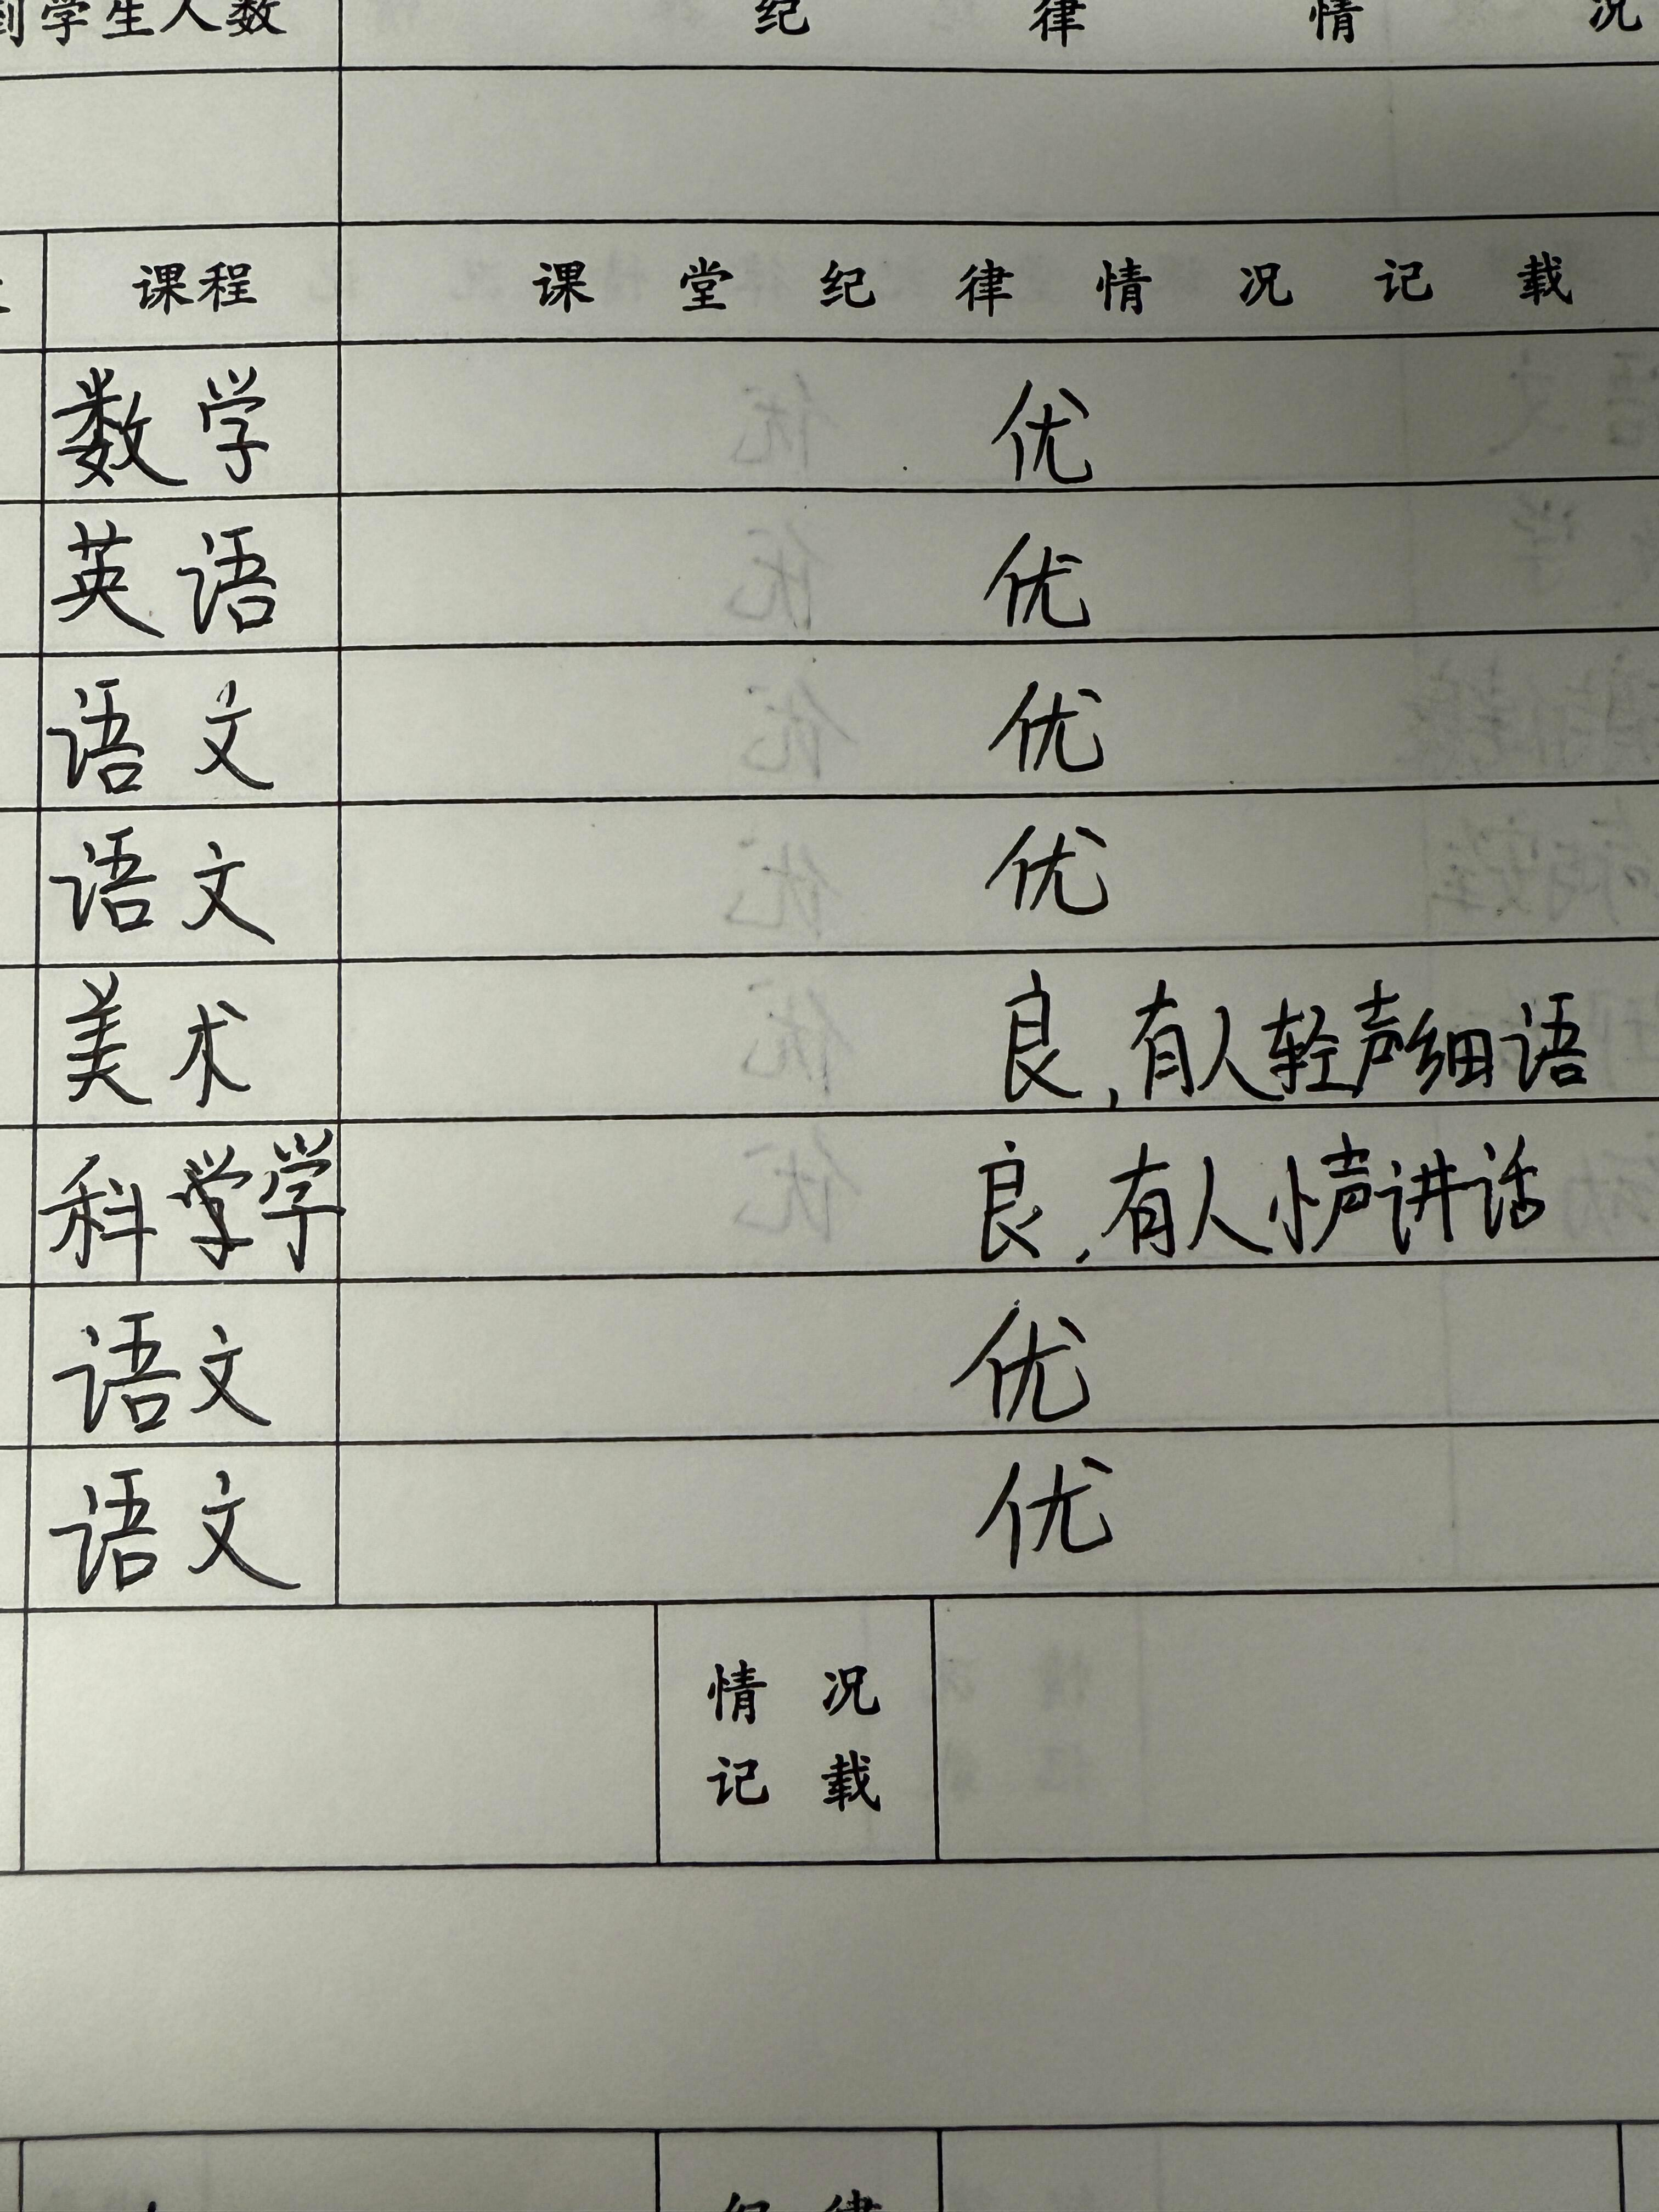 到学生人数 纪律情况
课程 课堂纪律情况记载
数学 优
英语 优
语文 优
语文 优
美术 良,有人轻声细语
科学 良,有人小声讲话
语文 优
语文 优
情况
记载
纪律